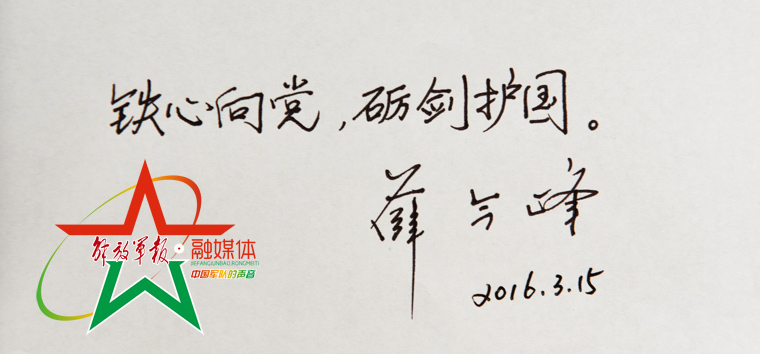 铁心向党,砺剑护国。
薛今峰
2016.3.15
解放军报·融媒体
JIEFANGJUNBAO RONGMEITI
中国军队的声音